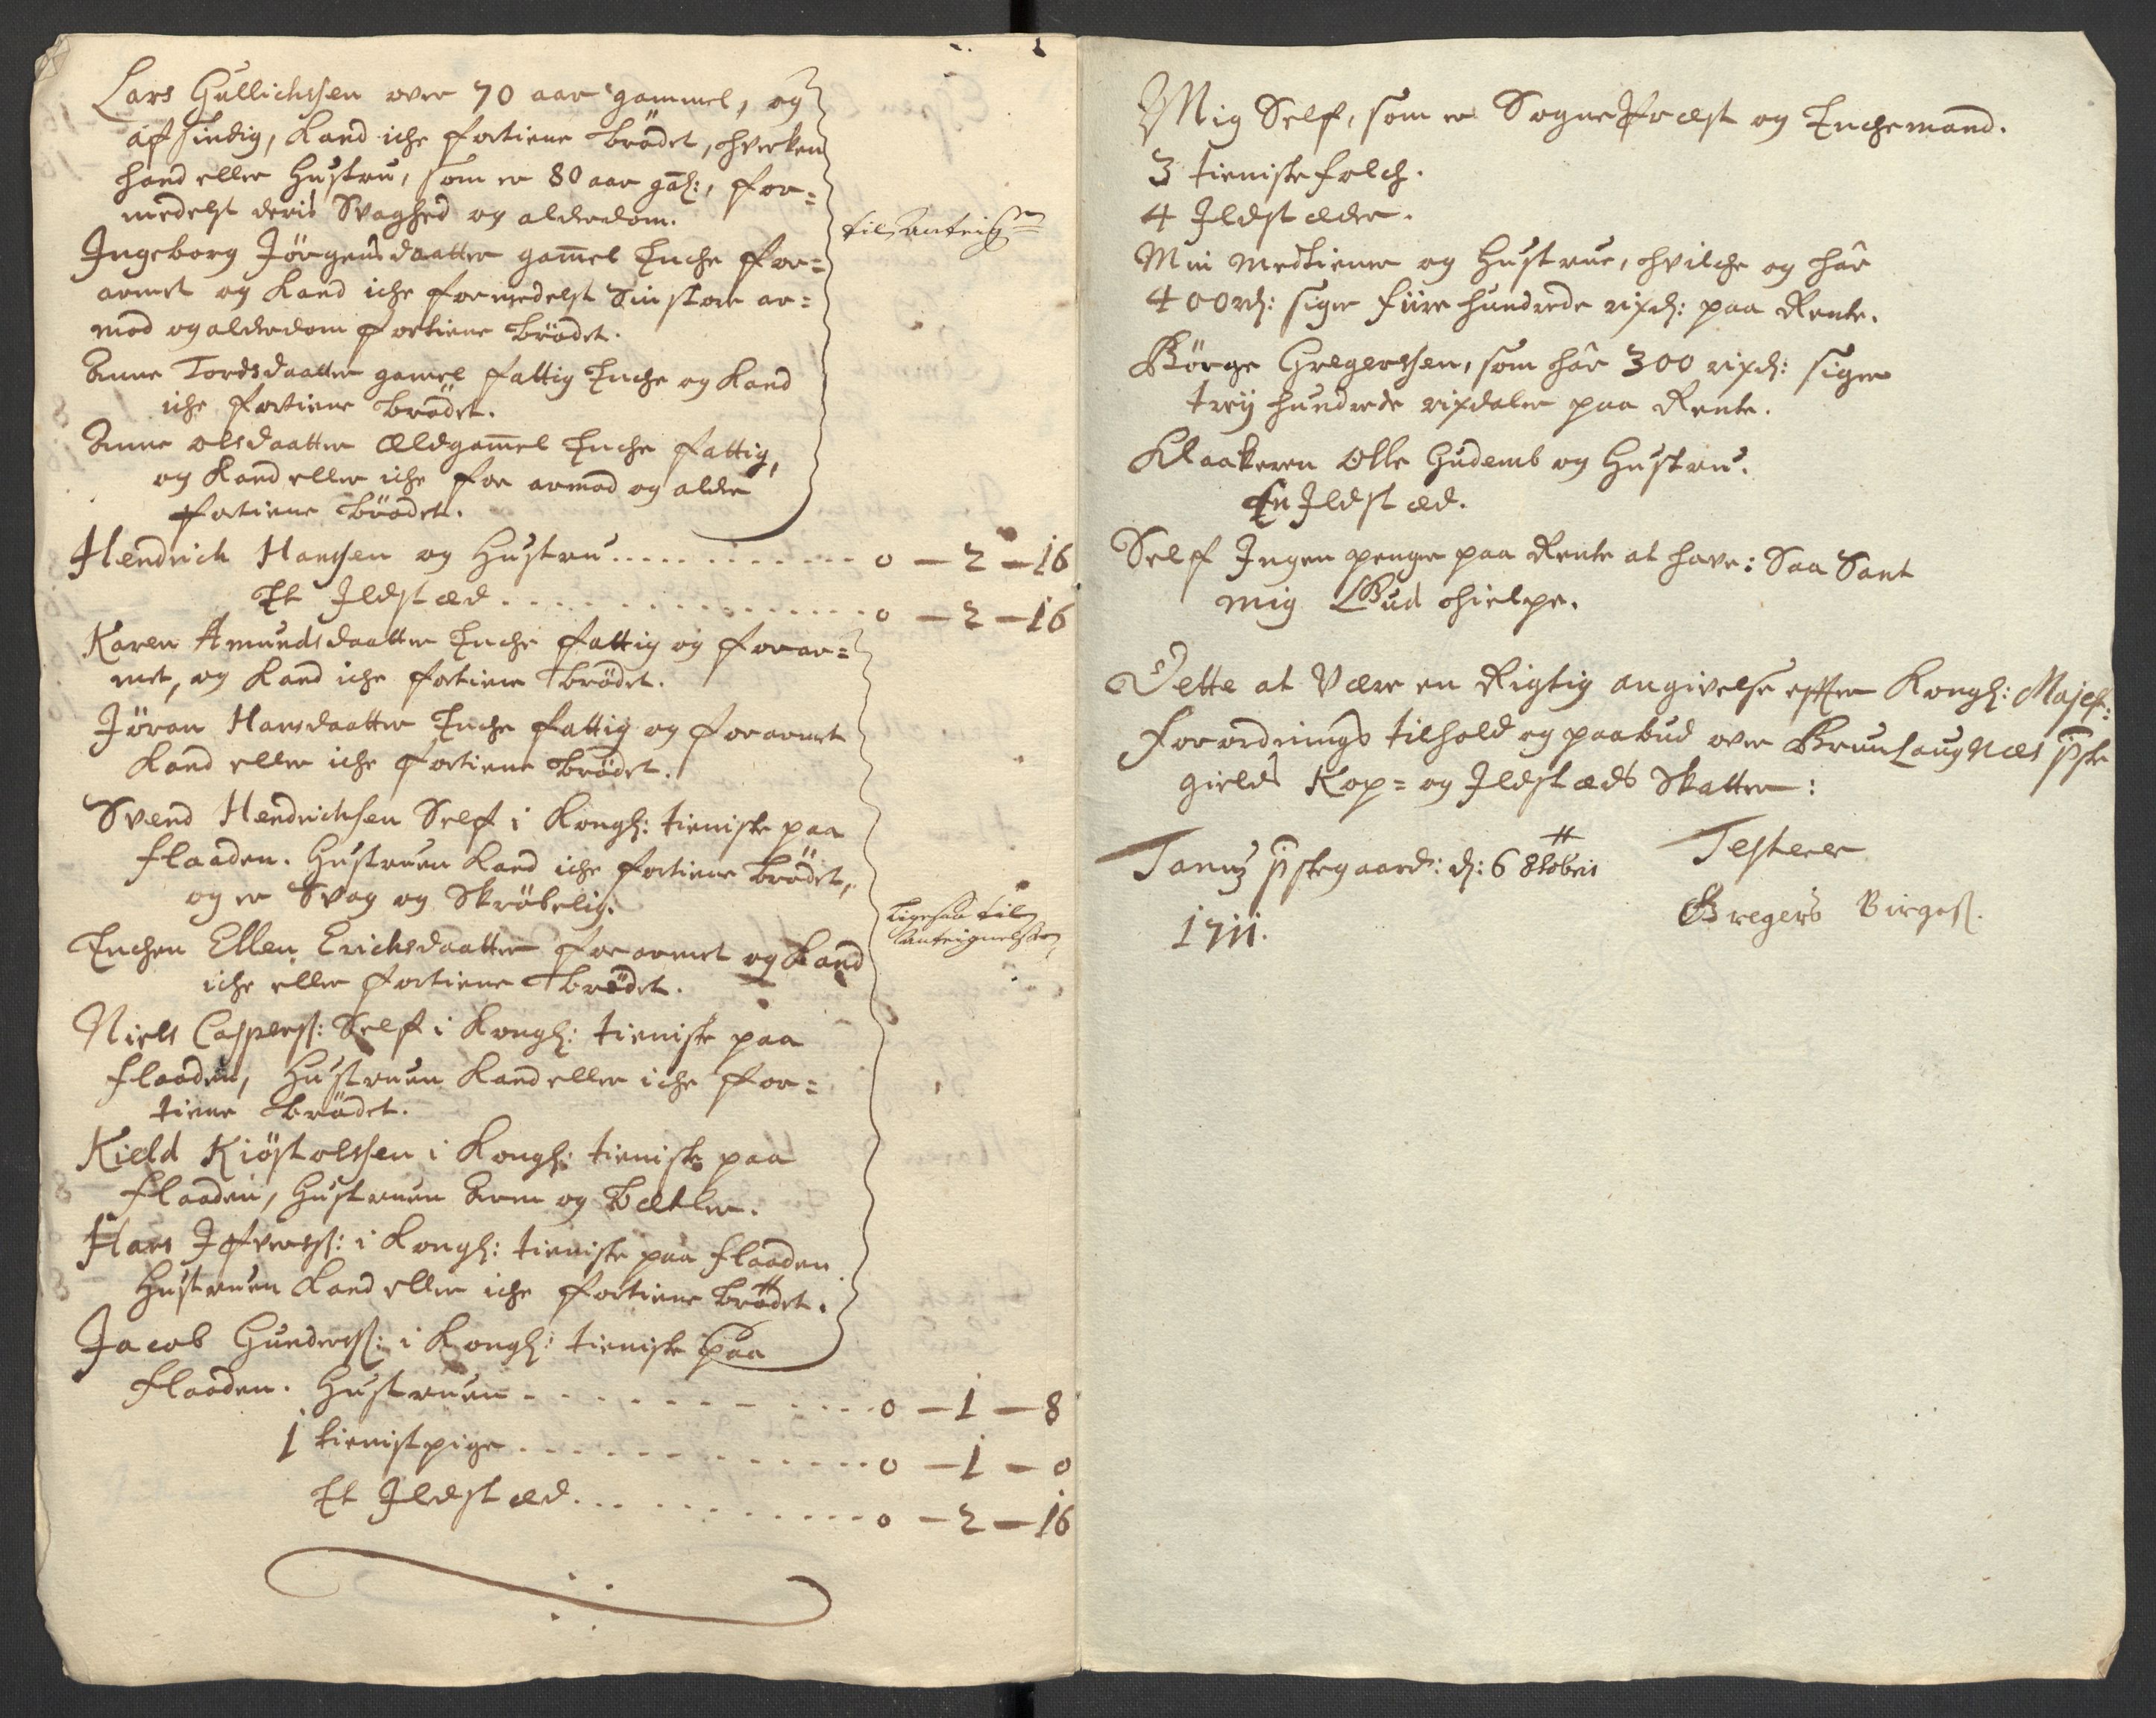 Lars Gullichssen over 70 aar gammel, og
afsindig, kand iche fortiene brödet, hverken
hand eller Hustru, som er 80 aar gal:, for=
medelst deris Svaghed og alderdom.
til Anteign
Ingeborg Jörgensdaatter gammel Enche for=
armet og kand iche formedelst Sin store ar=
mod og alderdom fortiene brödet.
Anne Tordsdaatter gamel fattig Enche og kand
iche fortiene brödet.
Anne olsdaatter Ældgammel Enche fattig,
og kand eller iche for armod og alder
fortiene brödet.
Hendrich Hanssen og Hustru............ 0 — 2 — 16
Et Ildstæd................ 0 — 2 — 16
Karen Amundsdaatter Enche fattig og forar=
met, og kand iche fortiene brödet.
Jöran Hansdaatter Enche fattig og forarmet
kand eller iche fortiene brödet.
Svend Hendrichsen Self i Kongl: tieniste paa
flaaden. Hustruen kand iche fortiene brödet,
og er Svag og Skröbelig.
Ligesaa til
Anteignelsen
Enchen Ellen Erichsdaatter forarmet og kand
iche eller fortiene brödet.
Niels Casperss: Self i Kongl: tieniste paa
flaaden, Hustruen kand eller iche for=
tiene brödet.
Kield Kiöstolssen i Kongl: tieniste paa
flaaden, Hustruen Arm og Bætler.
Hans Ifverss: i Kongl: tieniste paa flaaden
Hustruen kand eller iche fortiene brödet.
Jacob Gunderss: i Kongl: tieniste paa
flaaden. Hustruen............ 0 — 1 — 8
1 tienistpige............ 0 — 1 — 0
Et Ildstæd............ 0 — 2 — 16
Mig Self, som er SognePræst og Enchemand.
3 tienistefolch.
4 Ildstæder.
Min Medtiener og Hustrue, hvilche og har
400 rd: siger fiire hundrede rixd: paa Rente.
Börge Gregerssen, som har 300 rixd: siger
trej hundrede rixdaler paa Rente.
Klaakeren Olle Gudemb og Hustru.
En Ildstæd.
Self Ingen penger paa Rente at have: Saa Sant
mig Gud hielpe.
Dette at Være en Rigtig angivelse effter Kongl: Majest:
forordnings tilhold og paabud over Brunlaugnæs Pste
gields Kop= og Ildstæds Skatter:
Tanum Pstegaard: d: 6 8tobris
1711.
Testerer
Gregers Birgess.